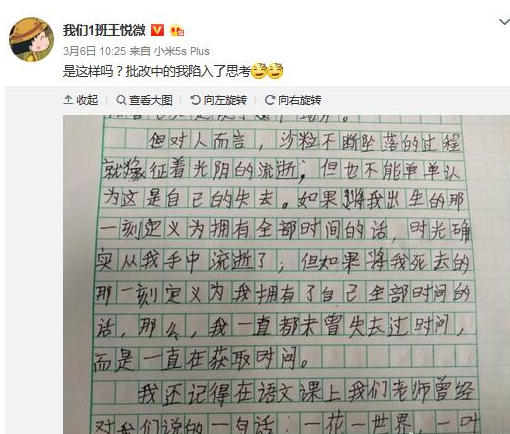 我们1班王悦微
3月6日 10:25 来自 小米5s Plus
是这样吗？批改中的我陷入了思考
收起 查看大图 向左旋转 向右旋转
但对人而言，沙粒不断坠落的过程
就像征着光阴的流逝；但也不能单单认
为这是自己的失去。如果将我出生的那
一刻定义为拥有全部时间的话，时光确
实从我手中流逝了；但如果将我死去的
那一刻定义为我拥有了自己全部时间的
话，那么，我一直都未曾失去过时间，
而是一直在获取时间。
我还记得在语文课上我们老师曾经
对我们说的一句话：一花一世界，一叶